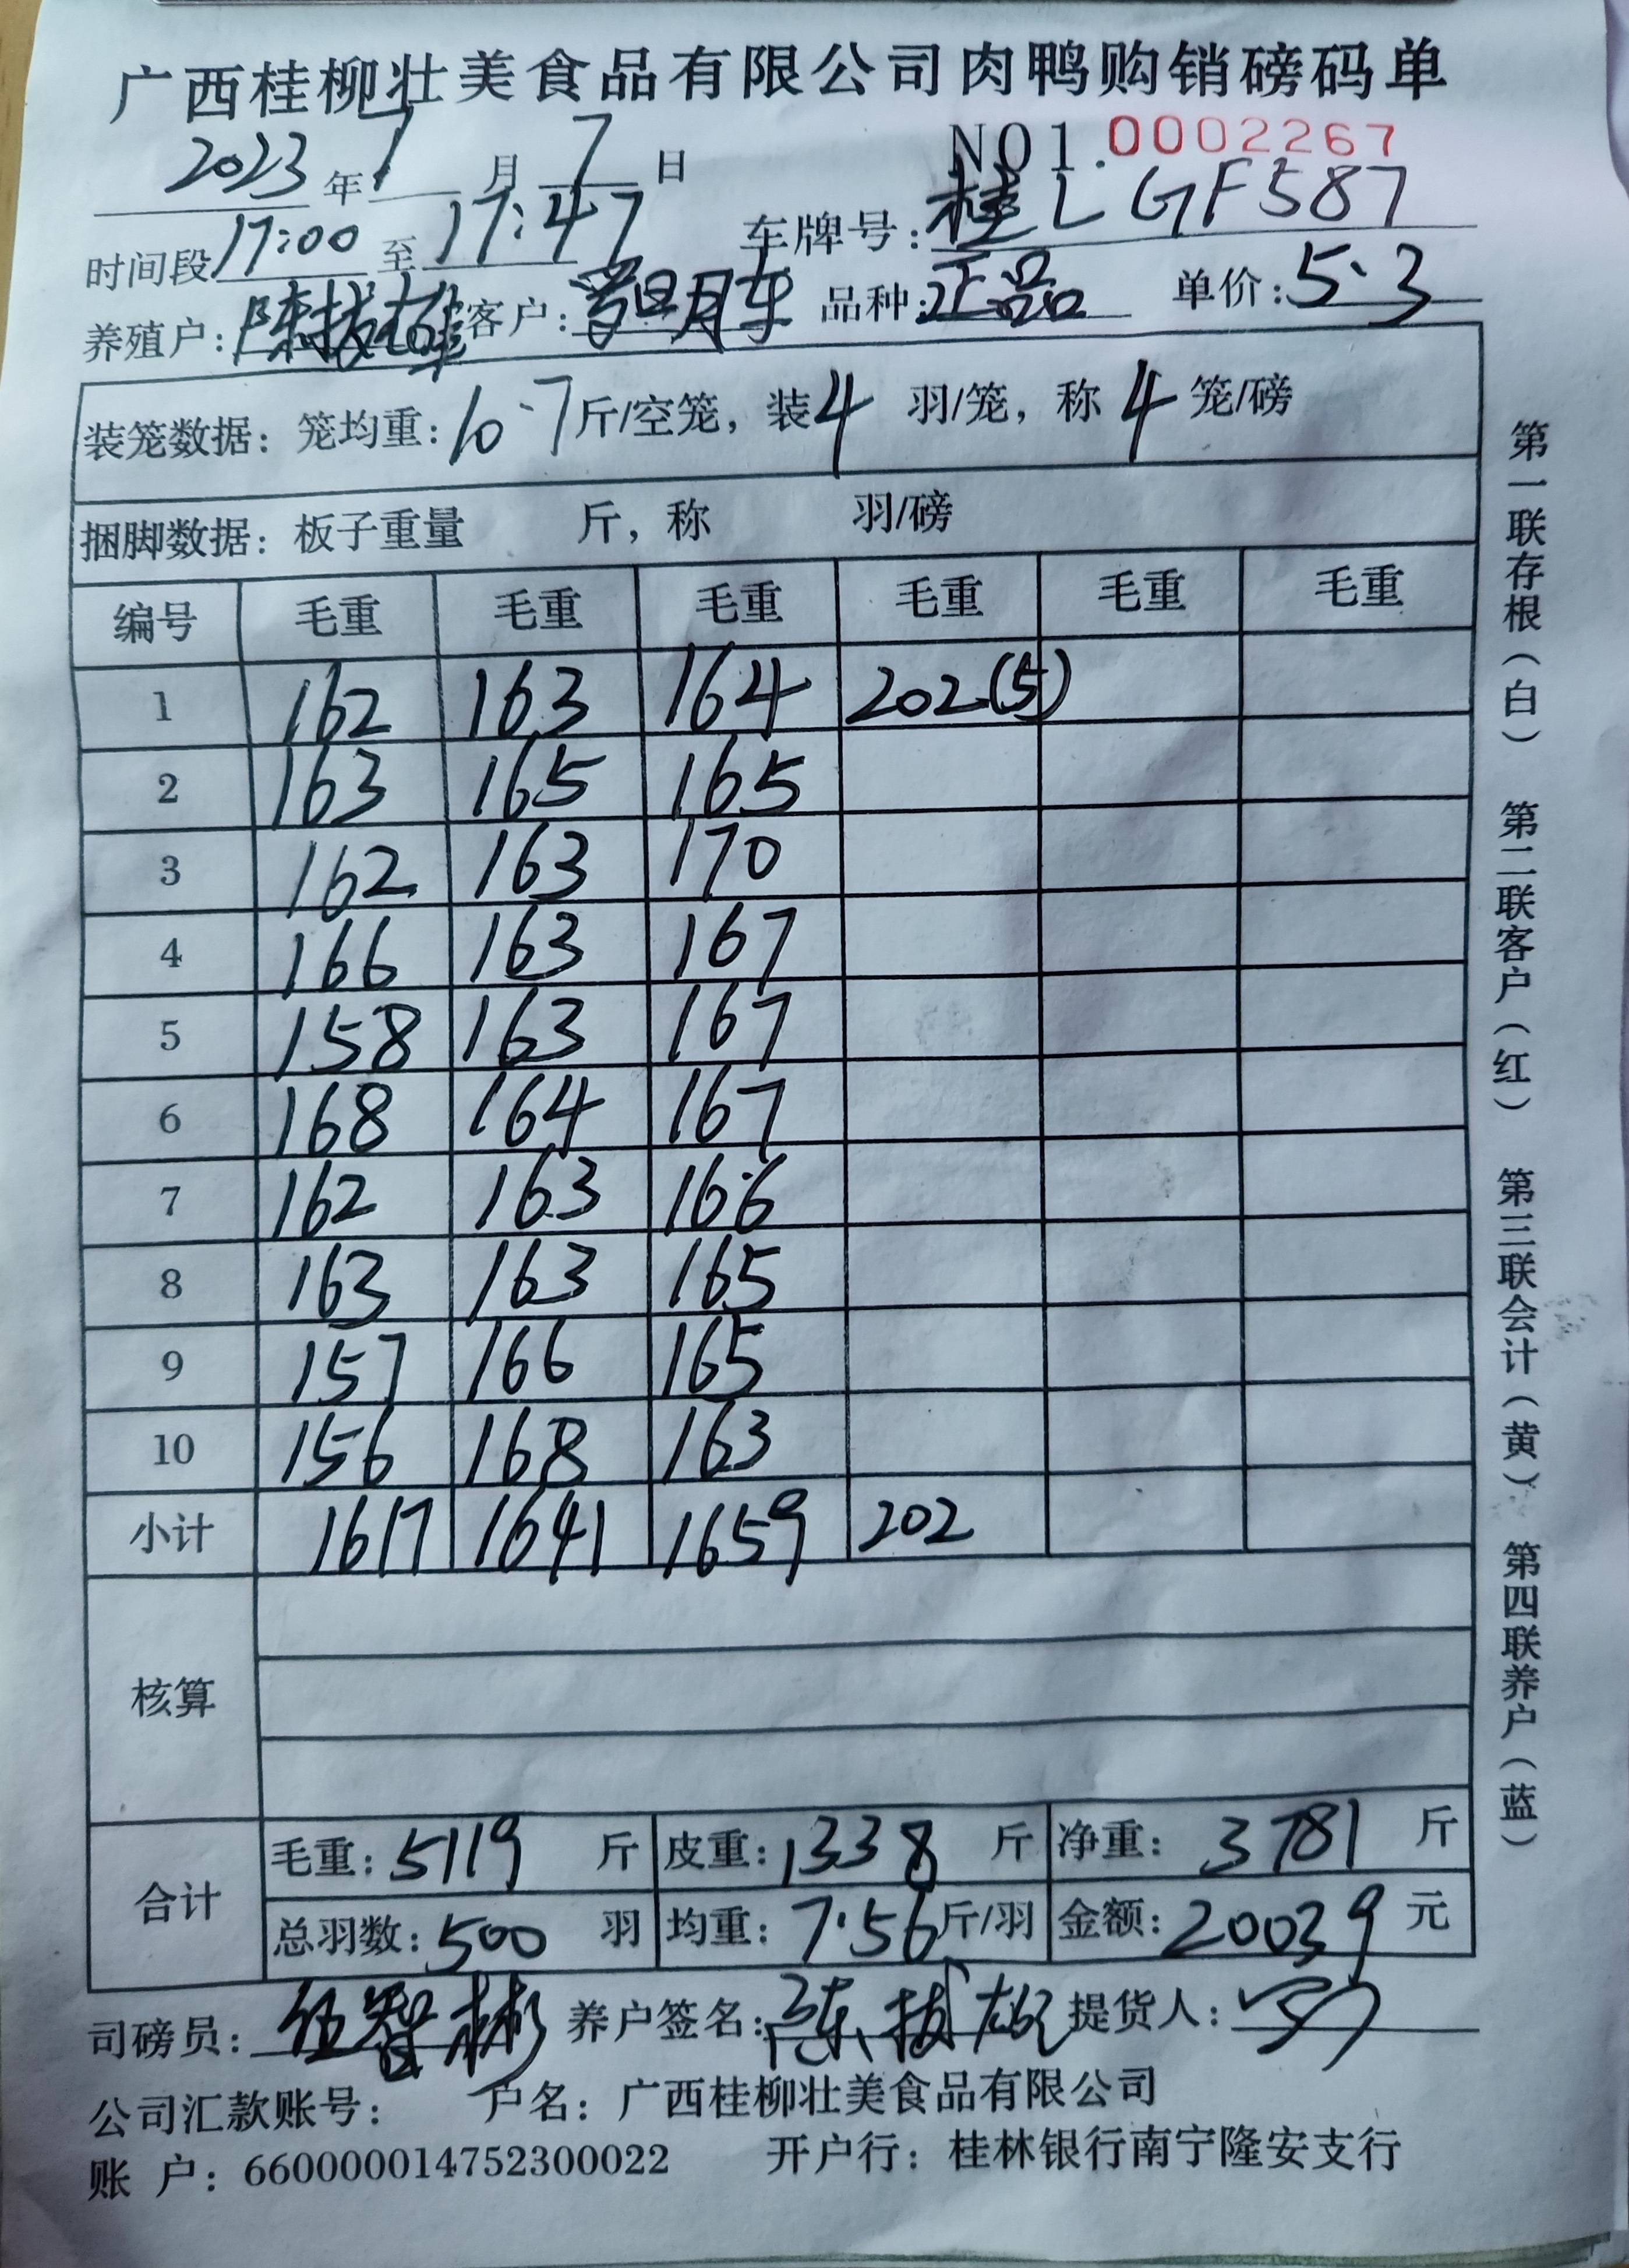 广西桂柳壮美食品有限公司肉鸭购销磅码单
NO1.0002267
2023年1月7日
时间段17:00至17:47 车牌号:桂LGF587
养殖户:陈拔雄 客户:曾月东 品种:正品 单价:5.3
装笼数据: 笼均重:10.7斤/空笼, 装4羽/笼, 称4笼/磅
捆脚数据: 板子重量 斤, 称 羽/磅
编号 毛重 毛重 毛重 毛重 毛重 毛重
1 162 163 164 202(5)
2 163 165 165
3 162 163 170
4 166 163 167
5 158 163 167
6 168 164 167
7 162 163 166
8 163 163 165
9 157 166 165
10 156 168 163
小计 1617 1641 1659 202
核算
合计
毛重:5119斤 皮重:1338斤 净重:3781斤
总羽数:500羽 均重:7.56斤/羽 金额:20039元
司磅员:伍智彬 养户签名:陈拔雄 提货人:
公司汇款账号: 户名:广西桂柳壮美食品有限公司
账 户:660000014752300022 开户行:桂林银行南宁隆安支行
第一联存根(白) 第二联客户(红) 第三联会计(黄) 第四联养户(蓝)